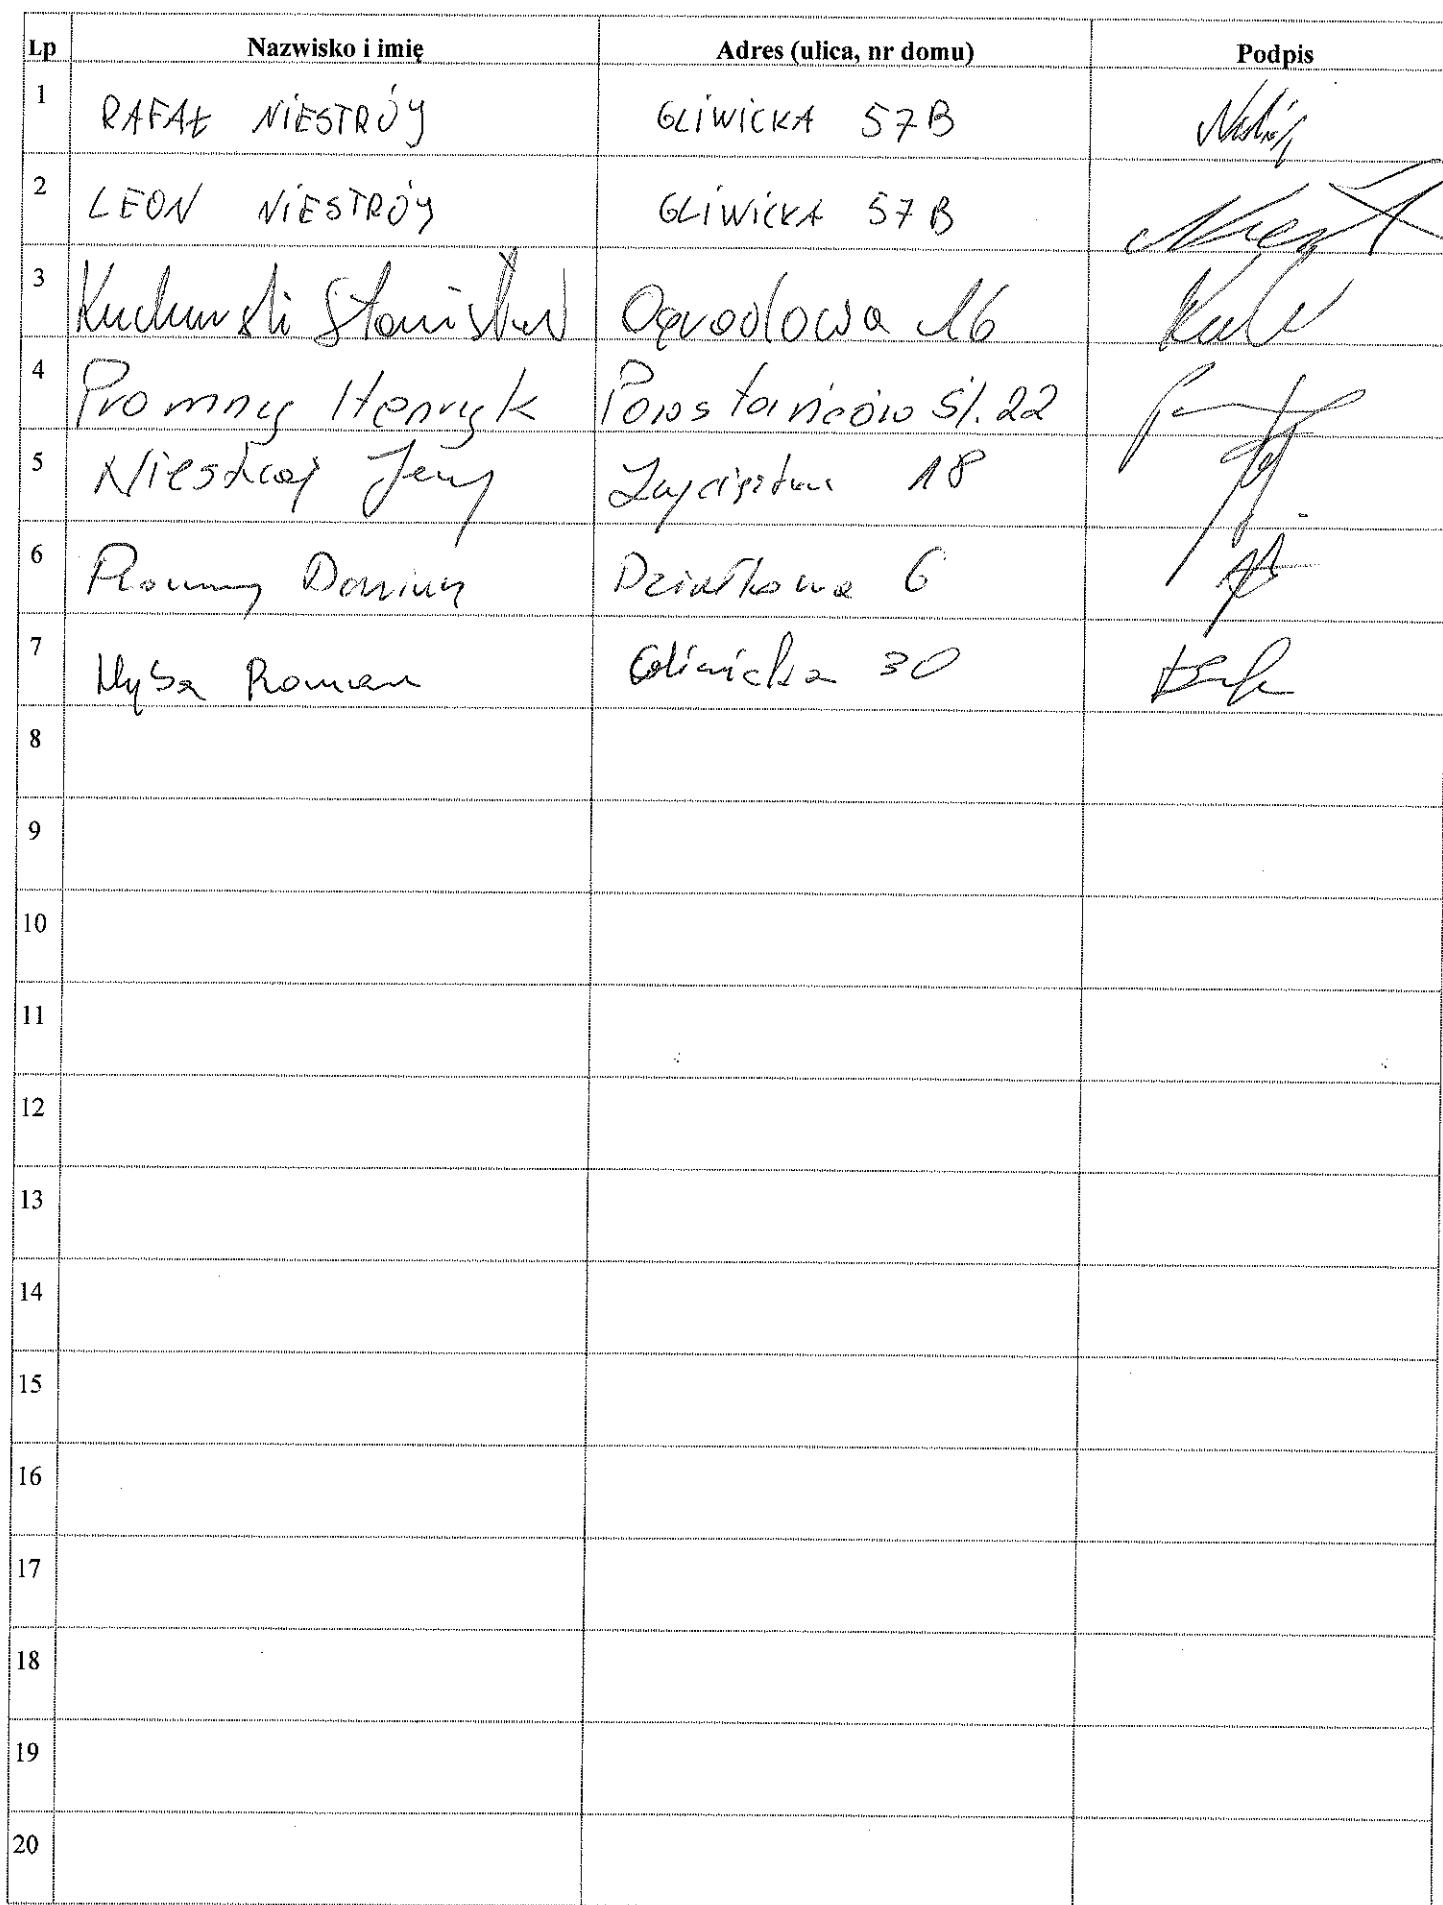 Lp Nazwisko i imię Adres (ulica, nr domu) Podpis
1 RAFAŁ NIESTRÓJ GLIWICKA 57B
2 LEON NIESTRÓJ GLIWICKA 57B
3 Stanisław Ogrodowa 16
4 Promny Henryk Powstańców Śl. 22
5 Niestrój Jerzy Zwycięstwa 18
6 Promny Działkowa 6
7 Roman Gliwicka 30
8
9
10
11
12
13
14
15
16
17
18
19
20